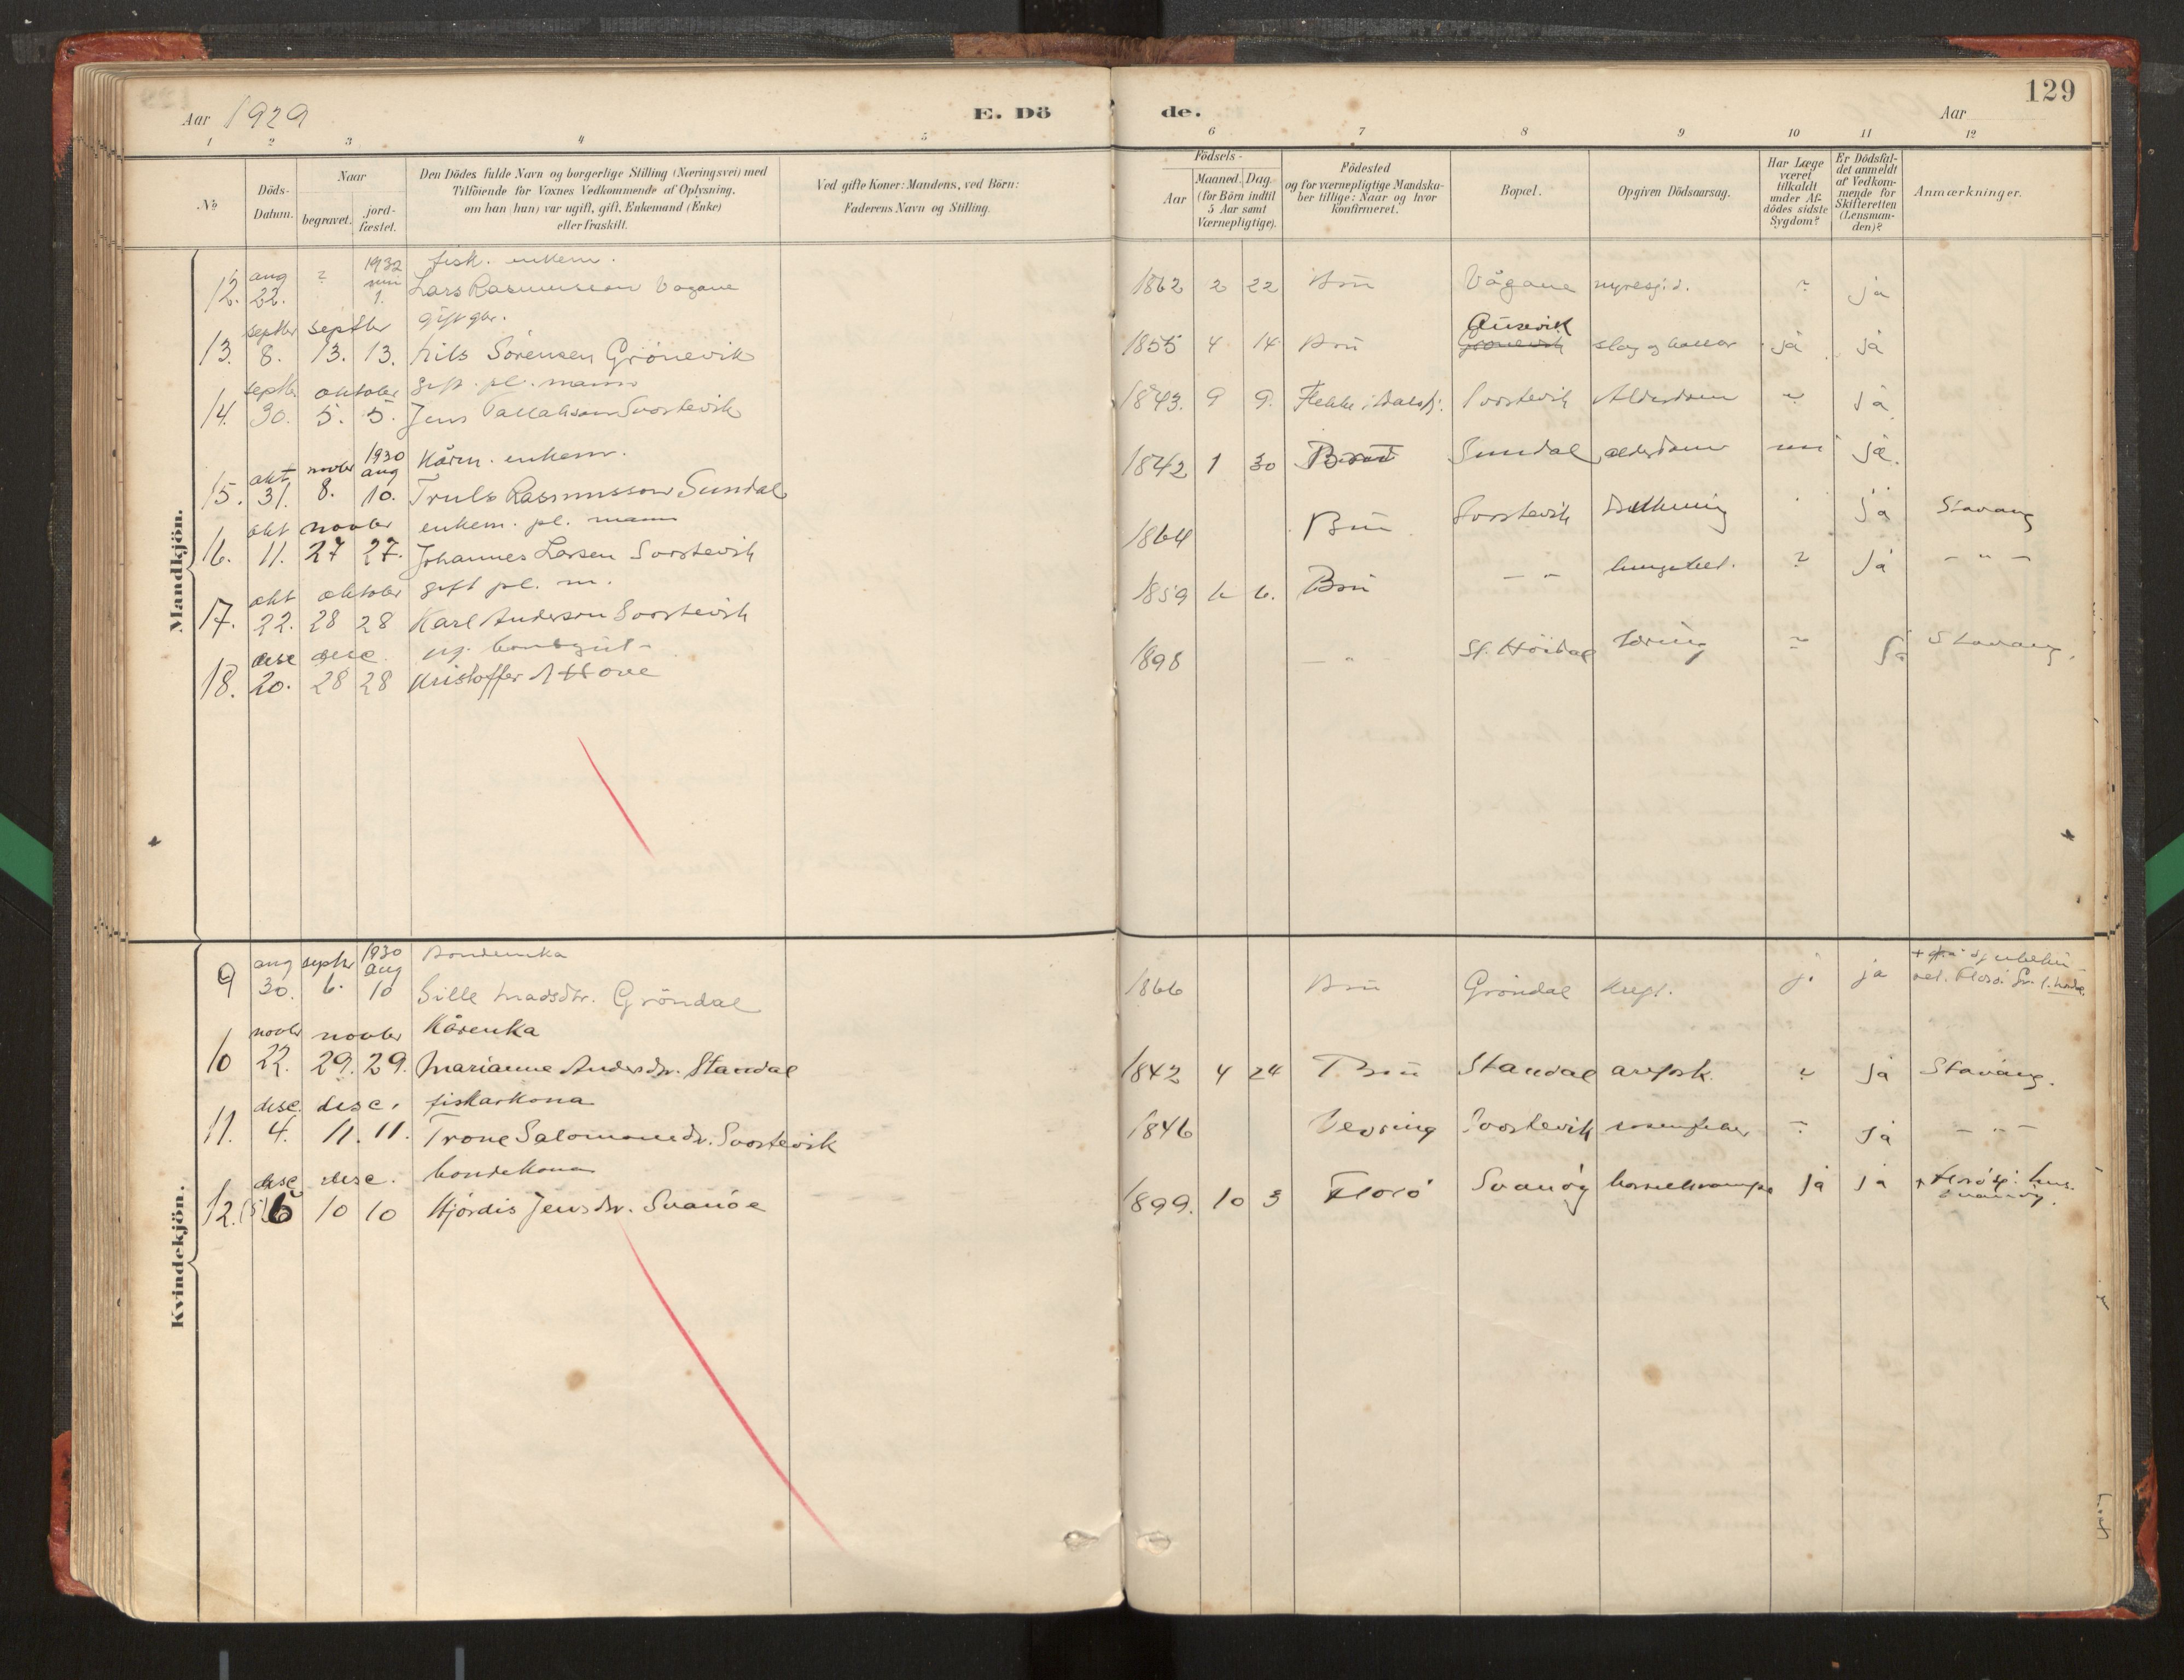 129
Aar 1929
E. Dö
de.
Aar
1 2 3 4 5 6 7 8 9 10 11 12
No
Döds-
Datum.
Naar
begravet.
jord-
fæstet.
Den Dödes fulde Navn og borgerlige Stilling (Næringsvei) med
Tilföiende for Voxnes Vedkommende af Oplysning,
om han (hun) var ugift, gift, Enkemand (Enke)
eller fraskilt.
Ved gifte Koner: Mandens, ved Börn:
Faderens Navn og Stilling.
Födsels-
Aar
Maaned. Dag.
(for Börn indtil
5 Aar samt
Værnepligtige).
Födested
og for værnepligtige Mandska-
ber tillige: Naar og hvor
konfirmeret.
Bopæl.
Opgiven Dödsaarsag.
Har Læge
været
tilkaldt
under Af-
dödes sidste
Sygdom?
Er Dödsfal-
det anmeldt
af Vedkom-
mende for
Skifteretten
(Lensman-
den)?
Anmærkninger.
Mandkjön.
aug ? 1932 fisk. enkem.
12. 22. 1. Lars Rasmussen Vågane 1862 2 22 Bru Vågane nyresjd. ? ja
septbr septbr gift gbr.
13. 8. 13. 13. Nils Sörensen Grönevik 1855 4 14 Bru Ausevik Grönevik slag og ja ja
septbr. oktober gift. pl. mann
14. 30. 5. 5. Jens Svortevik 1843. 9 9. Flekke i Dalsfj. Svortevik Alderdom ? ja
okt novbr 1930 aug Kårm. enkem.
15. 31. 8. 10. Truls Rasmusson Sundal 1842 1 30 Bru Sundal alderdom nei ja.
okt novbr enkem. pl. mann
16. 11. 27 27. Johannes Larsen Svortevik 1864 Bru Svortevik Drukning ja Stavang
okt oktober gift pl. m.
17. 22. 28 28 Karl Anderson Svortevik 1859 6 6. Bru — " lungebet. ? ja — " —
dese dese ug. bondegut
18. 20. 28 28 Kristoffer A Hove 1898 — " St. Höidal Tæring ? ja Stavang.
Kvindekjön.
aug septbr 1930 aug Bondeenka
9 30. 6. 10 Sille Madsdtr. Gröndal 1866 Bru Gröndal ja ja
novbr novbr Kårenka
10 22. 29. 29. Marianne Andersdtr. Standal 1842 4 24 Bru Standal ? ja Stavang.
dese. dese. fiskarkona
11. 4. 11. 11. Trone Salomonsdtr. Svortevik 1846 Vevring Svortevik rosenfeber ? ja — " —
dese dese. bondekona
12. (5) 6 10 10 Hjördis Jensdtr. Svanöe 1899. 10 3 Florö Svanöy ja ja + Florö sj. hus. Svanöy.